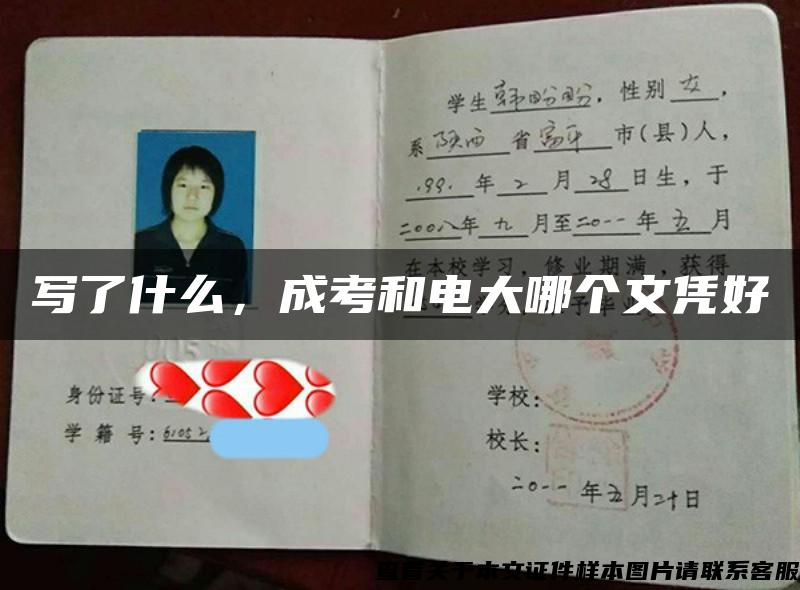 学生韩盼盼，性别女，
系陕西省富平市(县)人，
1991年2月28日生，于
二00八年九月至二0一一年五月
在本校学习，修业期满，获得
写了什么，成考和电大哪个文凭好
予毕业
005
身份证号：
学籍号：61052
学校：
校长：
二0一一年五月二十日
查看关于本文证件样本图片请联系客服